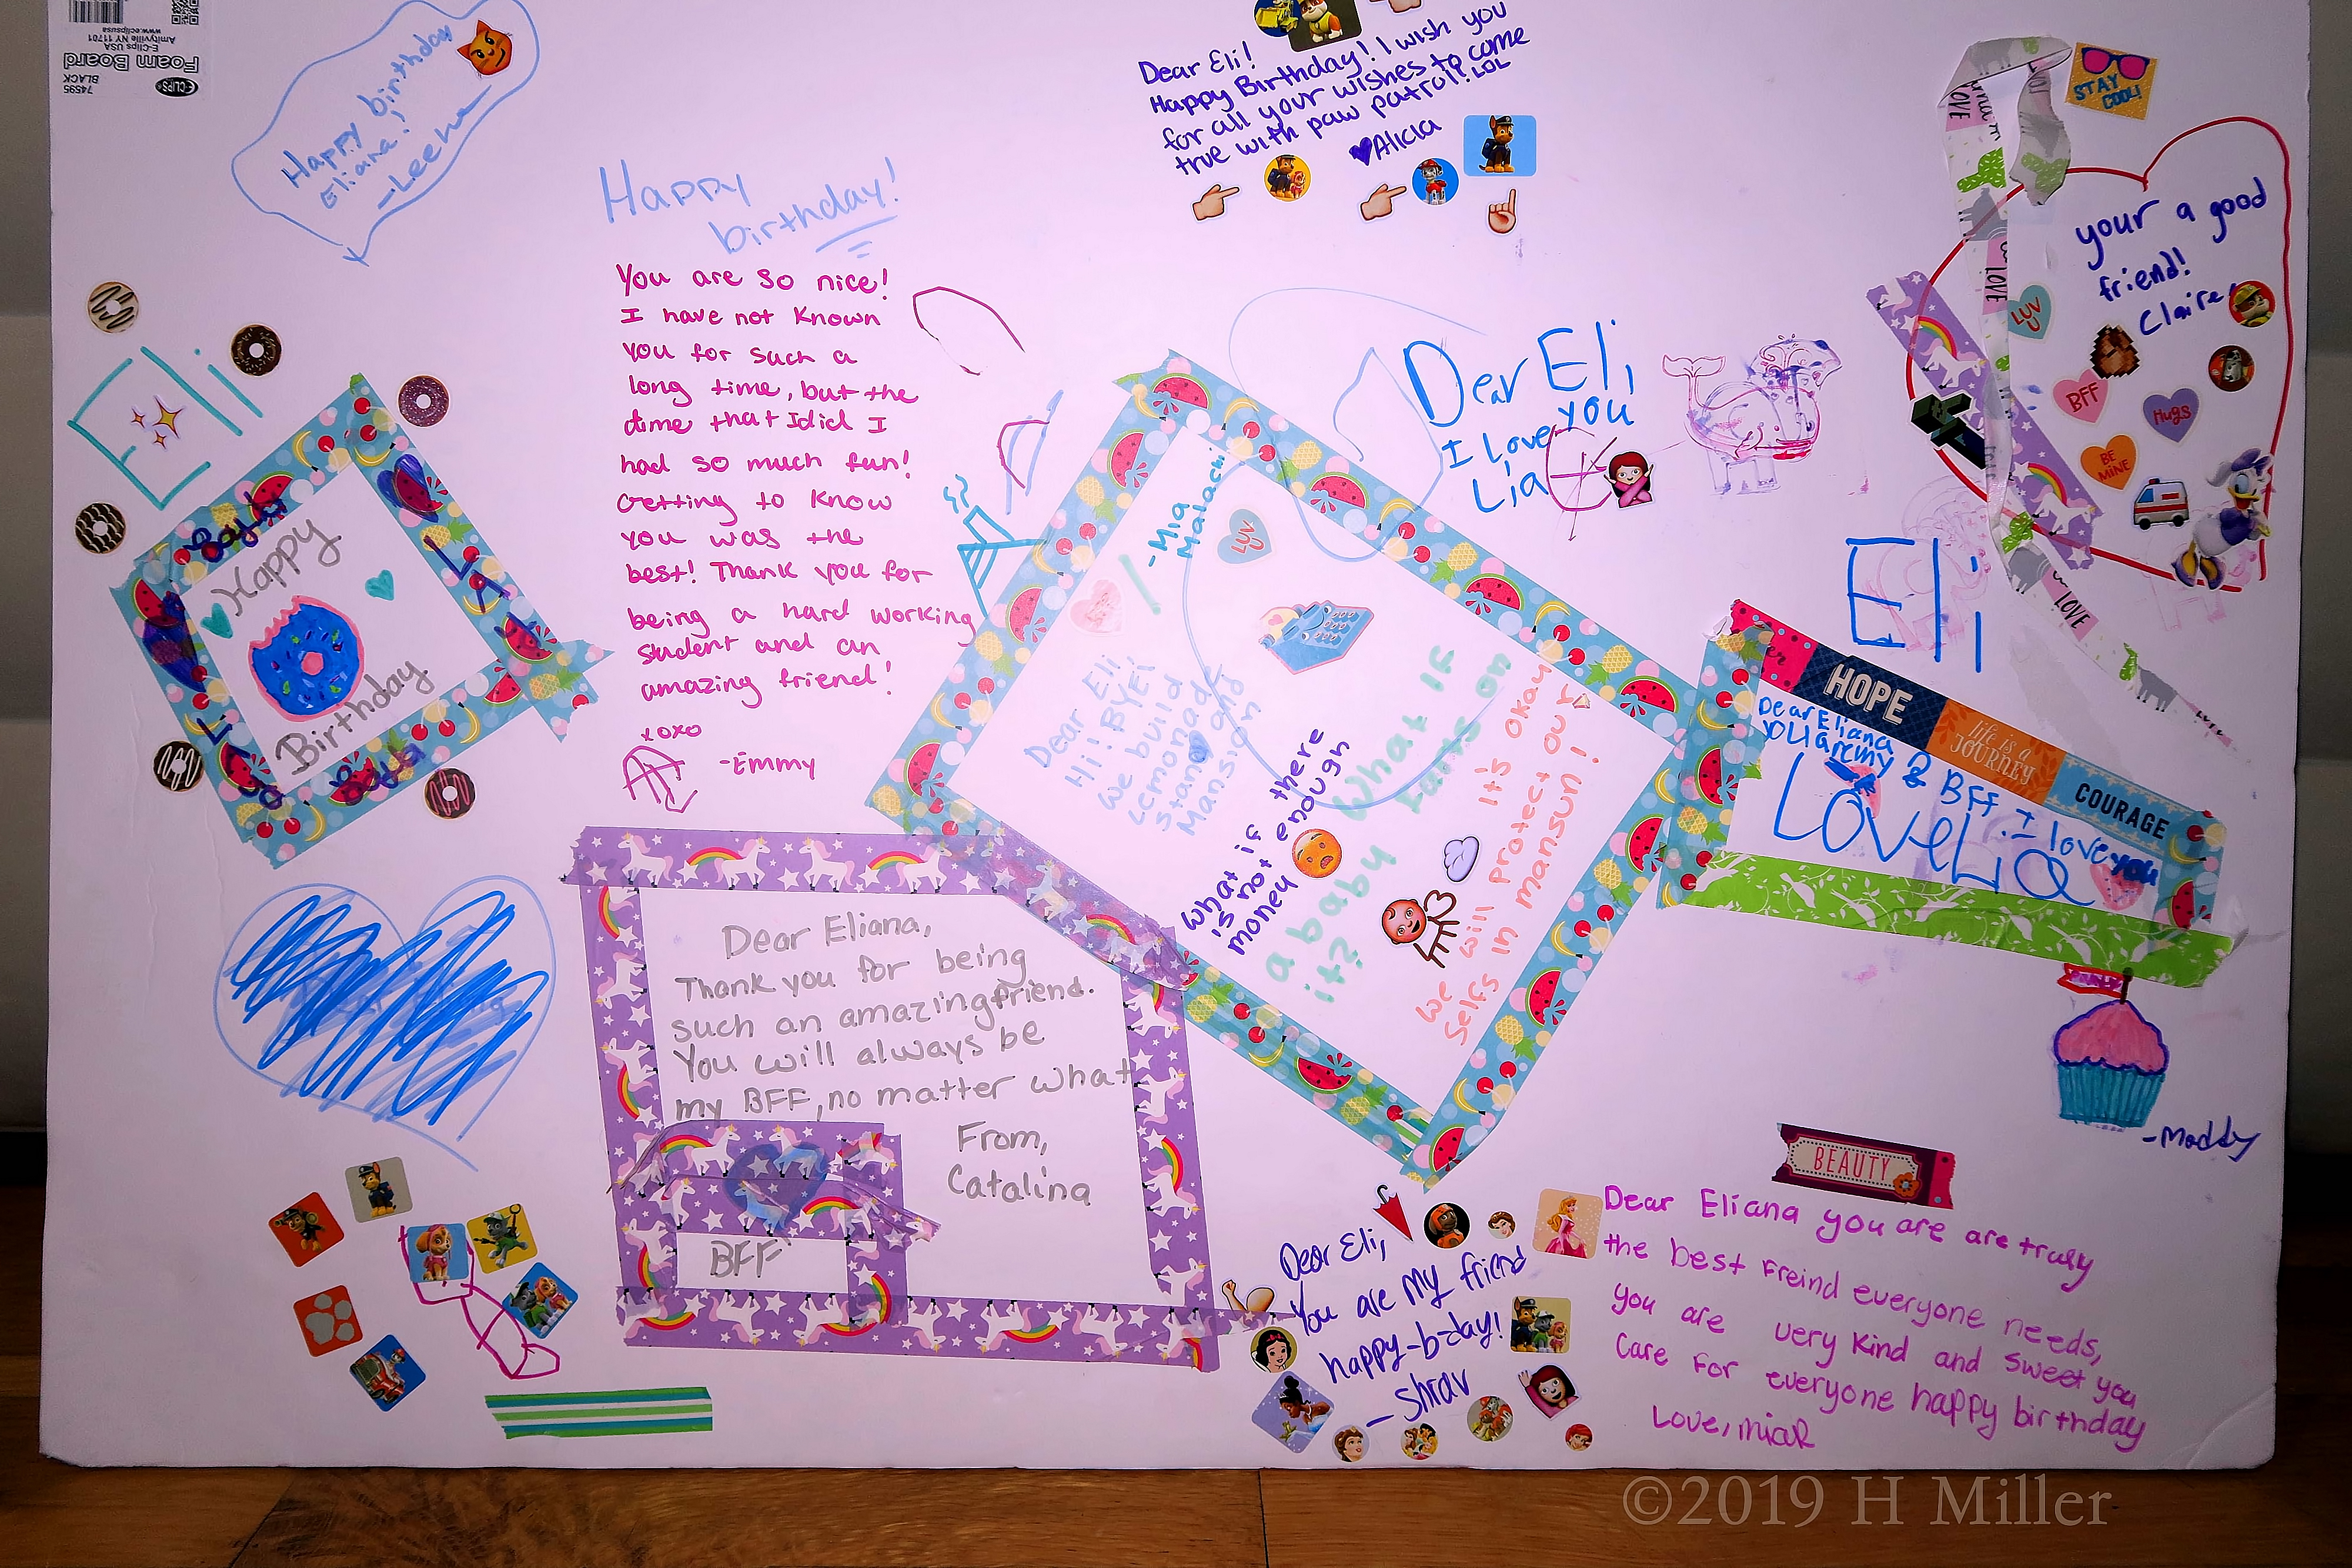 74595
BLACK
Foam Board
E-Clips USA
Amityville NY 11701
www.eclipsusa
E-CLIPS
Happy birthday
Eliana!
-Leena
Dear Eli!
Happy Birthday! I wish you
for all your wishes to come
true with paw patrol! LOL
Alicia
STAY
COOL!
LOVE
LOVE
LOVE
your a good
friend!
Claire
LUV
U
BFF
Hugs
BE
MINE
Happy
birthday!
You are so nice!
I have not known
you for such a
long time, but the
dime that I did I
had so much fun!
Getting to know
you was the
best! Thank you for
being a hard working
student and an
amazing friend!
xoxo
-Emmy
Eli
Happy
Birthday
Dear Eli,
I Love you
Lia
Eli
-Mia
Malachi
LUV
U
Dear Eli
Hi! BYE!
We build
Lemonade
stand and
Mansion
what if there
is not enough
money
What if
a baby
its?
it's okay
we will protect our
selfs in mansun!
HOPE
life is a
JOURNEY
COURAGE
Dear Eliana
you are my
BFF. I love you
Love Lia
Dear Eliana,
Thank you for being
such an amazing friend.
You will always be
my BFF, no matter what
From,
Catalina
BFF
-Maddy
BEAUTY
Dear Eli,
You are my friend
happy-b-day!
- Shrav
Dear Eliana you are are truly
the best Freind everyone needs,
you are very kind and sweet you
Care For everyone happy birthday
Love, miaR
©2019 H Miller